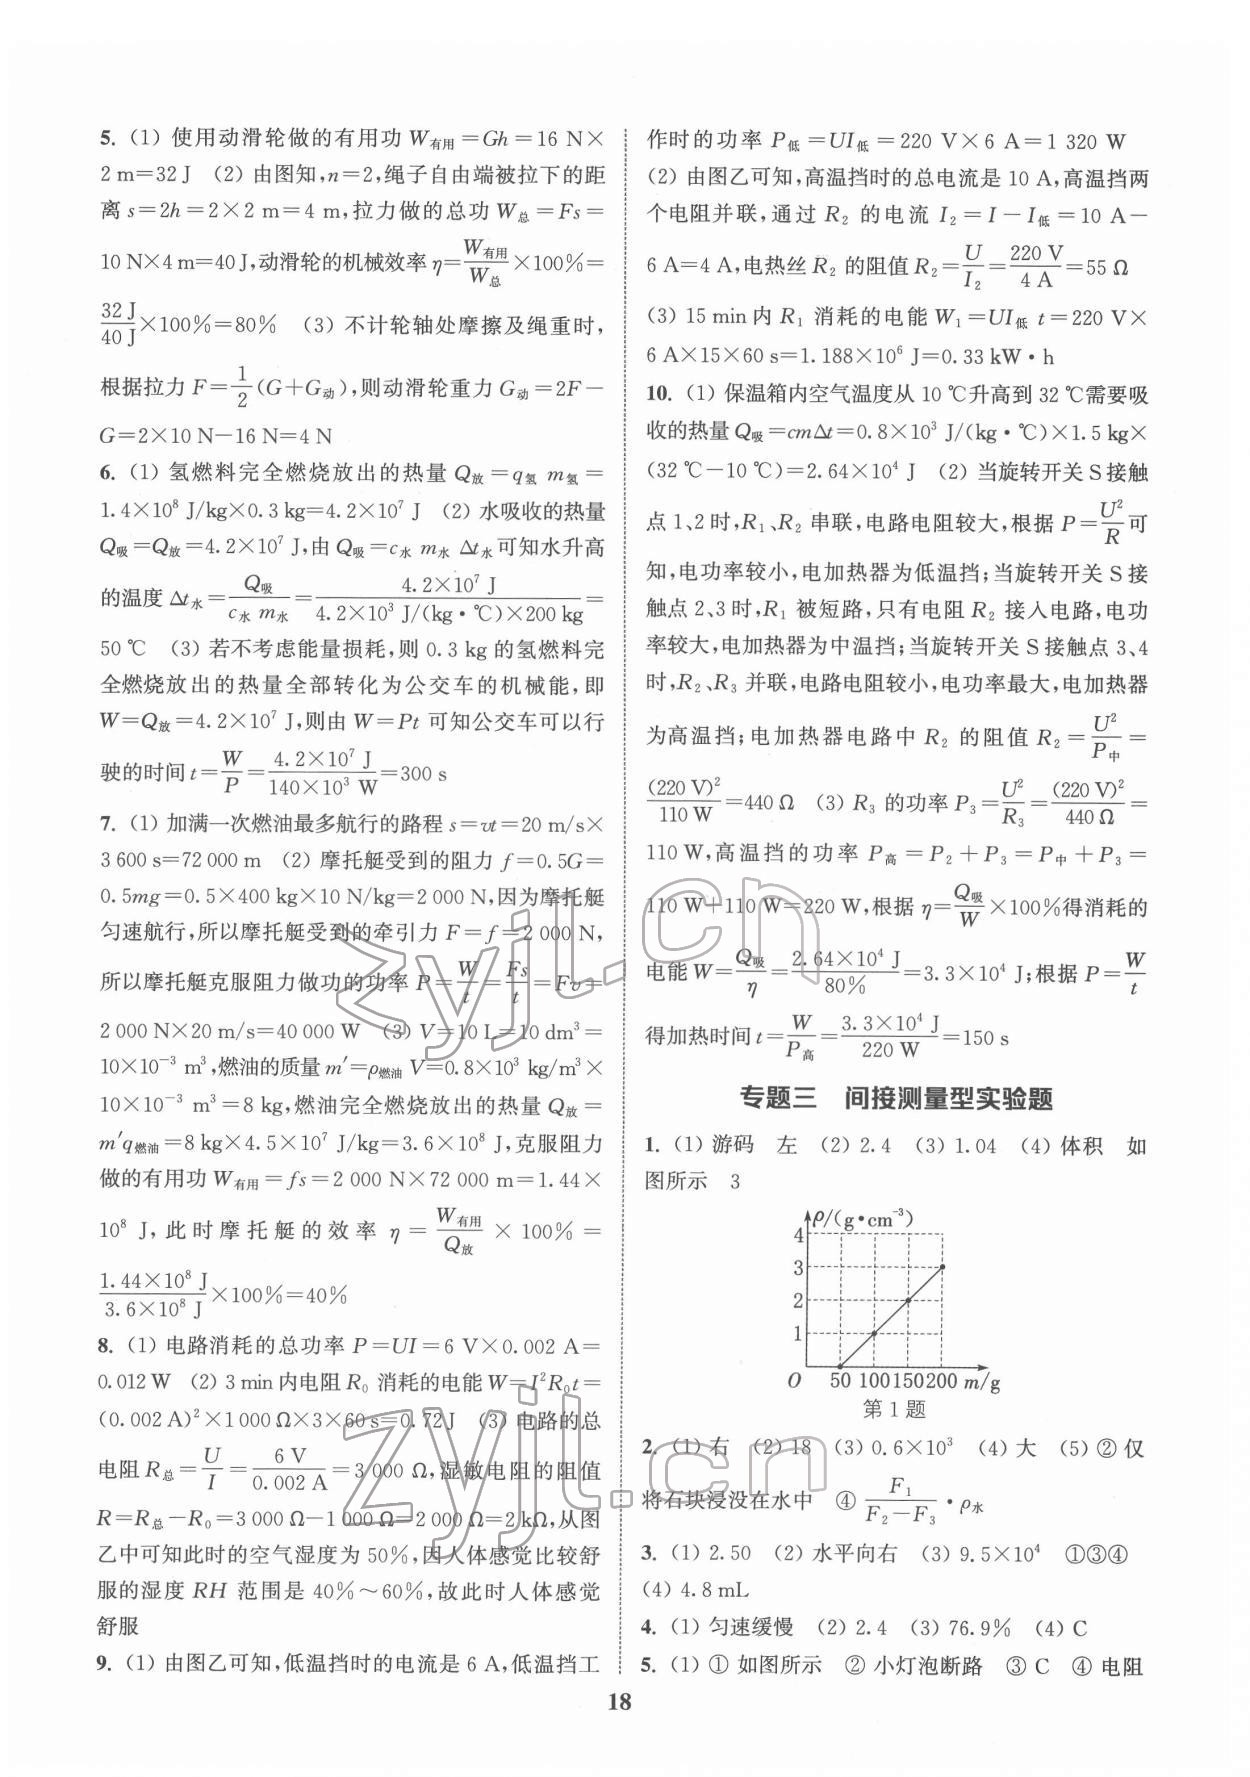 5. (1) 使用动滑轮做的有用功 W有用＝Gh＝16 N×
2 m＝32 J (2) 由图知,n＝2,绳子自由端被拉下的距
离 s＝2h＝2×2 m＝4 m,拉力做的总功 W总＝Fs＝
10 N×4 m＝40 J,动滑轮的机械效率 η＝W有用/W总×100%＝
32 J/40 J×100%＝80% (3) 不计轮轴处摩擦及绳重时,
根据拉力 F＝1/2(G＋G动),则动滑轮重力 G动＝2F－
G＝2×10 N－16 N＝4 N
6. (1) 氢燃料完全燃烧放出的热量 Q放＝q氢 m氢＝
1.4×10⁸ J/kg×0.3 kg＝4.2×10⁷ J (2) 水吸收的热量
Q吸＝Q放＝4.2×10⁷ J,由 Q吸＝c水 m水 Δt水可知水升高
的温度 Δt水＝Q吸/(c水 m水)＝4.2×10⁷ J/(4.2×10³ J/(kg·℃)×200 kg)＝
50 ℃ (3) 若不考虑能量损耗,则 0.3 kg 的氢燃料完
全燃烧放出的热量全部转化为公交车的机械能,即
W＝Q放＝4.2×10⁷ J,则由 W＝Pt 可知公交车可以行
驶的时间 t＝W/P＝4.2×10⁷ J/(140×10³ W)＝300 s
7. (1) 加满一次燃油最多航行的路程 s＝vt＝20 m/s×
3 600 s＝72 000 m (2) 摩托艇受到的阻力 f＝0.5G＝
0.5mg＝0.5×400 kg×10 N/kg＝2 000 N,因为摩托艇
匀速航行,所以摩托艇受到的牵引力 F＝f＝2 000 N,
所以摩托艇克服阻力做功的功率 P＝W/t＝Fs/t＝Fv＝
2 000 N×20 m/s＝40 000 W (3) V＝10 L＝10 dm³＝
10×10⁻³ m³,燃油的质量 m′＝ρ燃油 V＝0.8×10³ kg/m³×
10×10⁻³ m³＝8 kg,燃油完全燃烧放出的热量 Q放＝
m′q燃油＝8 kg×4.5×10⁷ J/kg＝3.6×10⁸ J,克服阻力
做的有用功 W有用＝fs＝2 000 N×72 000 m＝1.44×
10⁸ J,此时摩托艇的效率 η＝W有用/Q放×100%＝
1.44×10⁸ J/3.6×10⁸ J×100%＝40%
8. (1) 电路消耗的总功率 P＝UI＝6 V×0.002 A＝
0.012 W (2) 3 min 内电阻 R₀ 消耗的电能 W＝I²R₀t＝
(0.002 A)²×1 000 Ω×3×60 s＝0.72 J (3) 电路的总
电阻 R总＝U/I＝6 V/0.002 A＝3 000 Ω,湿敏电阻的阻值
R＝R总－R₀＝3 000 Ω－1 000 Ω＝2 000 Ω＝2 kΩ,从图
乙中可知此时的空气湿度为 50%,因人体感觉比较舒
服的湿度 RH 范围是 40%～60%,故此时人体感觉
舒服
9. (1) 由图乙可知,低温挡时的电流是 6 A,低温挡工
作时的功率 P低＝UI低＝220 V×6 A＝1 320 W
(2) 由图乙可知,高温挡时的总电流是 10 A,高温挡两
个电阻并联,通过 R₂ 的电流 I₂＝I－I低＝10 A－
6 A＝4 A,电热丝 R₂ 的阻值 R₂＝U/I₂＝220 V/4 A＝55 Ω
(3) 15 min 内 R₁ 消耗的电能 W₁＝UI低 t＝220 V×
6 A×15×60 s＝1.188×10⁶ J＝0.33 kW·h
10. (1) 保温箱内空气温度从 10 ℃升高到 32 ℃需要吸
收的热量 Q吸＝cmΔt＝0.8×10³ J/(kg·℃)×1.5 kg×
(32 ℃－10 ℃)＝2.64×10⁴ J (2) 当旋转开关 S 接触
点 1、2 时,R₁、R₂ 串联,电路电阻较大,根据 P＝U²/R 可
知,电功率较小,电加热器为低温挡;当旋转开关 S 接
触点 2、3 时,R₁ 被短路,只有电阻 R₂ 接入电路,电功
率较大,电加热器为中温挡;当旋转开关 S 接触点 3、4
时,R₂、R₃ 并联,电路电阻较小,电功率最大,电加热器
为高温挡;电加热器电路中 R₂ 的阻值 R₂＝U²/P中＝
(220 V)²/110 W＝440 Ω (3) R₃ 的功率 P₃＝U²/R₃＝(220 V)²/440 Ω＝
110 W,高温挡的功率 P高＝P₂＋P₃＝P中＋P₃＝
110 W＋110 W＝220 W,根据 η＝Q吸/W×100%得消耗的
电能 W＝Q吸/η＝2.64×10⁴ J/80%＝3.3×10⁴ J;根据 P＝W/t
得加热时间 t＝W/P高＝3.3×10⁴ J/220 W＝150 s
专题三 间接测量型实验题
1. (1) 游码 左 (2) 2.4 (3) 1.04 (4) 体积 如
图所示 3
ρ/(g·cm⁻³)
4
3
2
1
O 50 100 150 200 m/g
第 1 题
2. (1) 右 (2) 18 (3) 0.6×10³ (4) 大 (5) ② 仅
将石块浸没在水中 ④ F₁/(F₂－F₃)·ρ水
3. (1) 2.50 (2) 水平向右 (3) 9.5×10⁴ ①③④
(4) 4.8 mL
4. (1) 匀速缓慢 (2) 2.4 (3) 76.9% (4) C
5. (1) ① 如图所示 ② 小灯泡断路 ③ C ④ 电阻
18
zyjl.cn
zyjl.cn